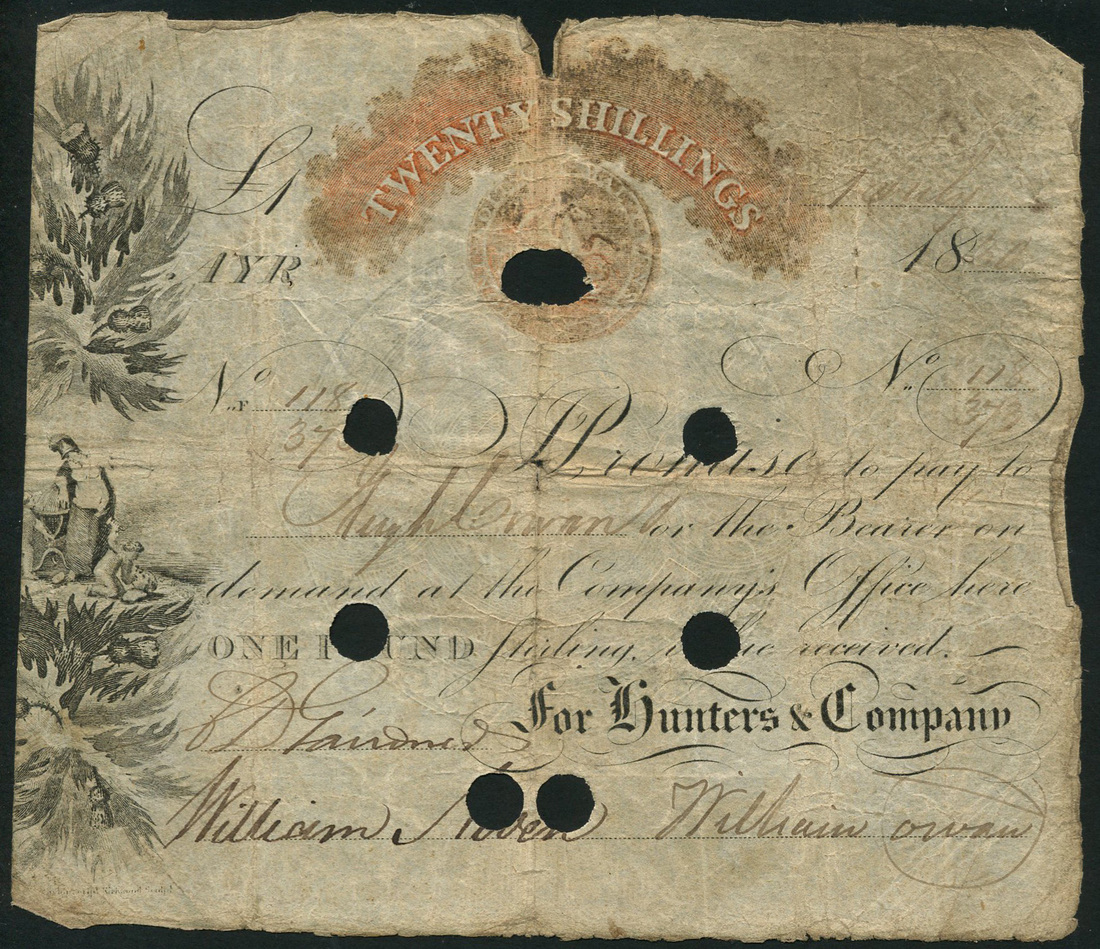 TWENTY SHILLINGS
£1
AYR, 18
No. F 118 No. 118
373 373
Promise to pay to
Hugh Cowan or the Bearer on
demand at the Company's Office here
ONE POUND Sterling, value received.
For Hunters & Company
William William Cowan